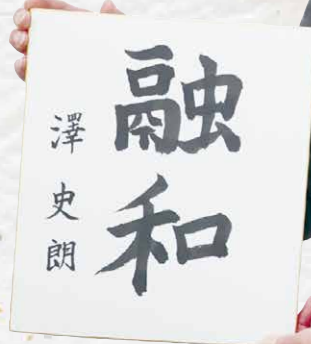 融和
澤史朗